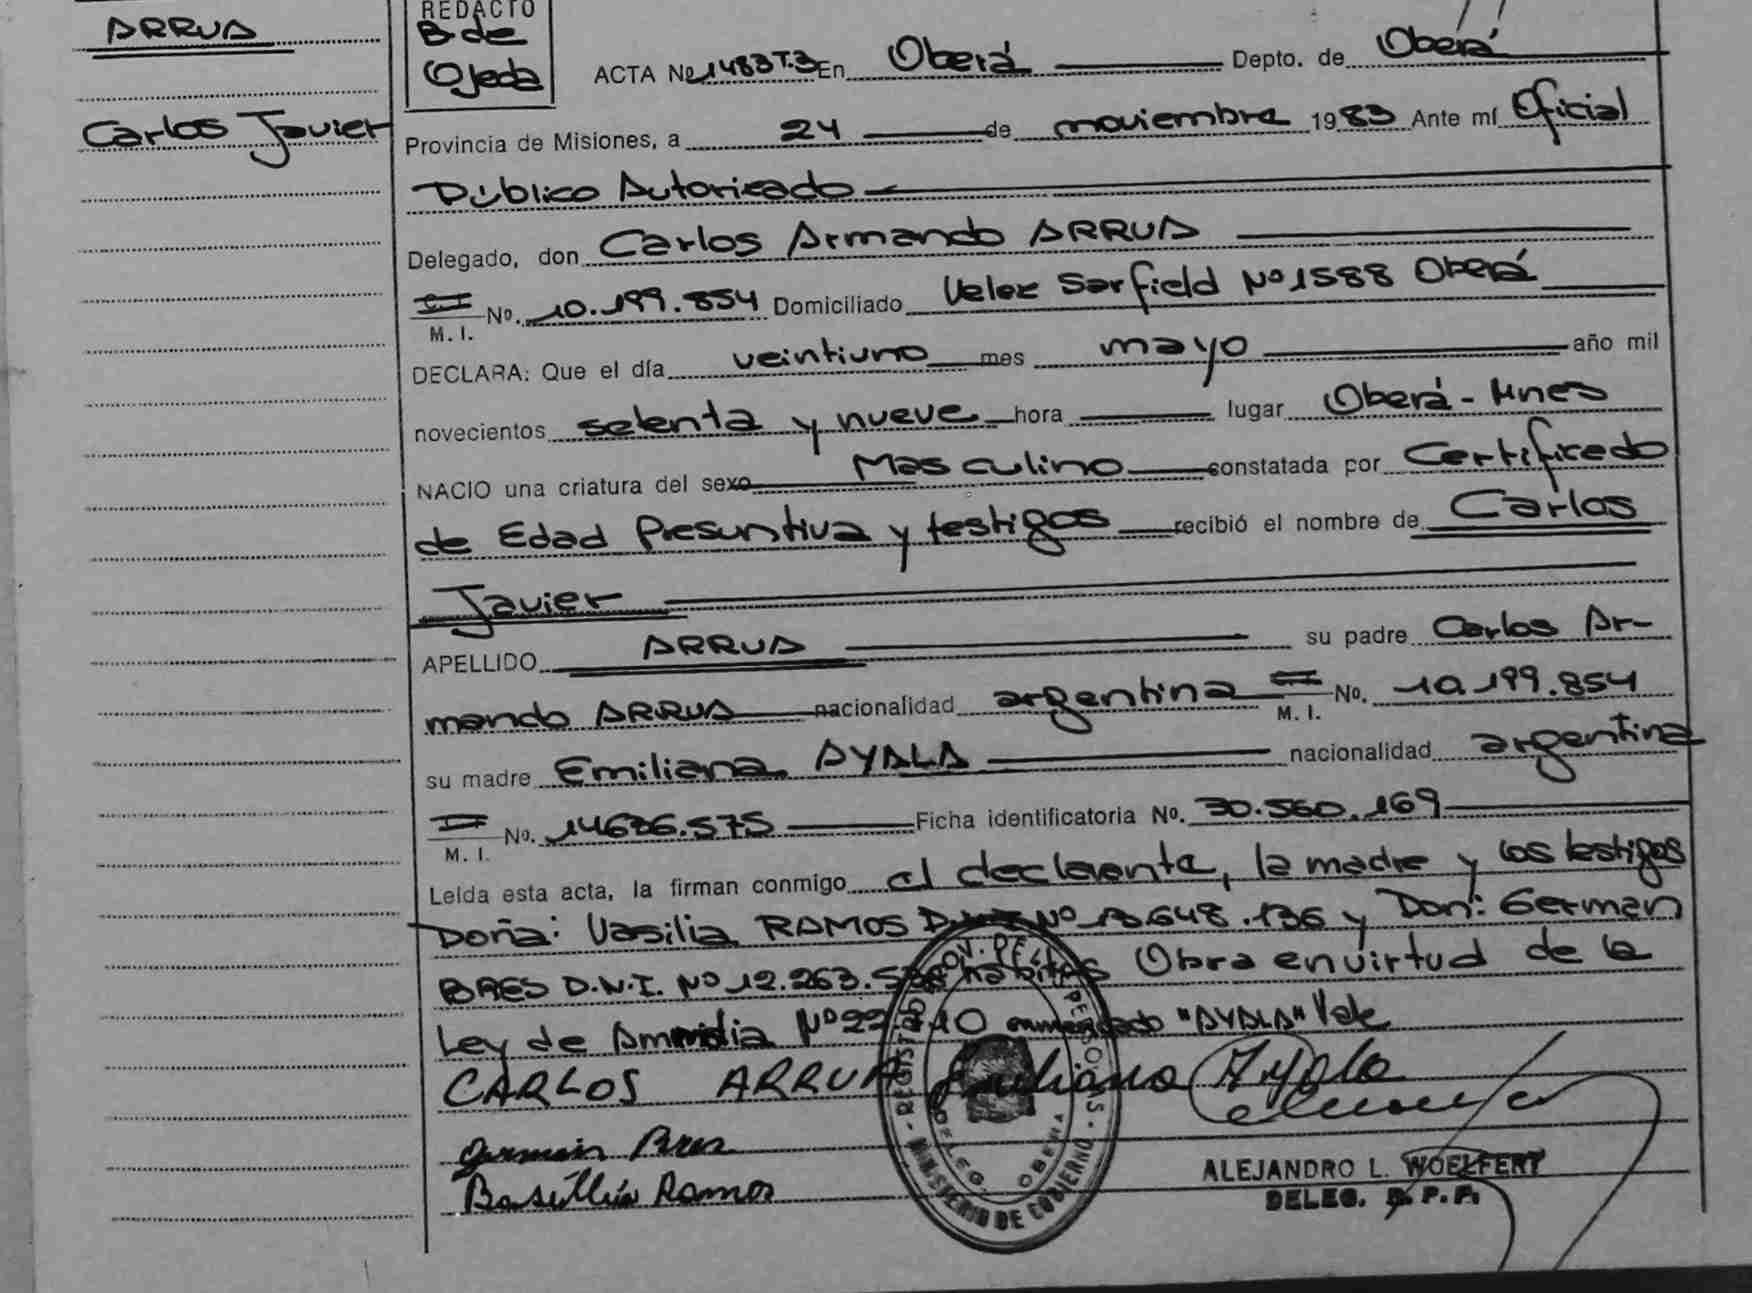 ARRUA
Carlos Javier
REDACTO
B de
Ojeda
ACTA No 1483 T.3 En Oberá Depto. de Oberá
Provincia de Misiones, a 24 de noviembre 1983 Ante mí Oficial
Público Autorizado
Delegado, don Carlos Armando ARRUA
M. I. No. 10.199.854 Domiciliado Velez Sarfield Nº 1588 Oberá
DECLARA: Que el día veintiuno mes mayo año mil
novecientos setenta y nueve hora lugar Oberá - Mnes
NACIO una criatura del sexo Masculino constatada por Certificado
de Edad Presuntiva y testigos recibió el nombre de Carlos
Javier
APELLIDO ARRUA su padre Carlos Ar-
mando ARRUA nacionalidad argentina M. I. No. 10.199.854
su madre Emiliana AYALA nacionalidad argentina
M. I. No. 14636.575 Ficha identificatoria No. 30.560.169
Leída esta acta, la firman conmigo el declarante, la madre y los testigos
Doña: Vasilia RAMOS Nº 13.648.136 y Don: German
BRES D.N.I. Nº 12.263. habites Obra en virtud de la
Ley de Amnistia Nº 22 10 enmendado "AYALA" Vale
CARLOS ARRUA Emiliana Ayala
German Bres
Basillia Ramos
REGISTRO PROV. DE PERSONAS - MINISTERIO DE GOBIERNO
DELEG. OBERA
ALEJANDRO L. WOELFERT
DELEG. R. P. P.